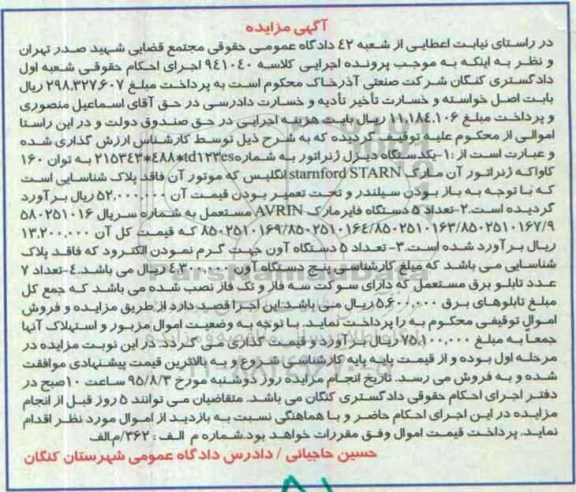 آگهی مزایده
در راستای نیابت اعطایی از شعبه ۴۲ دادگاه عمومی حقوقی مجتمع قضایی شهید صدر تهران
و نظر به اینکه به موجب پرونده اجرایی کلاسه ۹۴۱۰۴۰ اجرای احکام حقوقی شعبه اول
دادگستری کنگان شرکت صنعتی آذرخاک محکوم است به پرداخت مبلغ ۲۹۸.۳۲۷.۶۰۷ ریال
بابت اصل خواسته و خسارت تأخیر تأدیه و خسارت دادرسی در حق آقای اسماعیل منصوری
و پرداخت مبلغ ۱۱.۱۸۴.۱۰۶ ریال بابت هزینه اجرایی در حق صندوق دولت و در این راستا
اموالی از محکوم علیه توقیف گردیده که به شرح ذیل توسط کارشناس ارزش گذاری شده
و عبارت است از :۱-یکدستگاه دیزل ژنراتور به شماره td۱۲۳cs*٤۸۸*۲۱۵۳٤۳ به توان ۱۶۰
کاواکه ژنراتور آن مارک starnford STARN انگلیس که موتور آن فاقد پلاک شناسایی است
که با توجه به باز بودن سیلندر و تحت تعمیر بودن قیمت آن ۵۲.۰۰۰.۰۰۰ ریال برآورد
گردیده است.۲-تعداد ۵ دستگاه فایرمارک AVRIN مستعمل به شماره سریال ۵۸۰۲۵۱۰۱۶
۸۵۰۲۵۱۰۱۶۹/۸۵۰۲۵۱۰۱۶٤/۸۵۰۲۵۱۰۱۶۳/۸۵۰۲۵۱۰۱۶۷/۹ که قیمت کل آن ۱۳.۲۰۰.۰۰۰
ریال برآورد شده است.۳- تعداد ۵ دستگاه آون جهت گرم نمودن الکترود که فاقد پلاک
شناسایی می باشد که مبلغ کارشناسی پنج دستگاه آون ۴.۳۰۰.۰۰۰ ریال می باشد.٤-تعداد ۷
عدد تابلو برق مستعمل که دارای سوکت سه فاز و تک فاز نصب شده می باشد که جمع کل
مبلغ تابلوهای برق ۵.۶۰۰.۰۰۰ ریال می باشد این اجرا قصد دارد از طریق مزایده و فروش
اموال توقیفی محکوم به را پرداخت نماید. با توجه به وضعیت اموال مزبور و استهلاک آنها
جمعاً به مبلغ ۷۵.۱۰۰.۰۰۰ ریال برآورد و قیمت گذاری می گردد در این نوبت مزایده در
مرحله اول بوده و از قیمت پایه کارشناسی شروع و به بالاترین قیمت پیشنهادی موافقت
شده و به فروش می رسد. تاریخ انجام مزایده روز دوشنبه مورخ ۹۵/۸/۳ ساعت ۱۰صبح در
دفتر اجرای احکام حقوقی دادگستری کنگان می باشد. متقاضیان می توانند ۵ روز قبل از انجام
مزایده در این اجرای احکام حاضر و با هماهنگی نسبت به بازدید از اموال مورد نظر اقدام
نماید. پرداخت قیمت اموال وفق مقررات خواهد بود.شماره م الف : ۳۶۲/م‌الف
حسین حاجیانی / دادرس دادگاه عمومی شهرستان کنگان